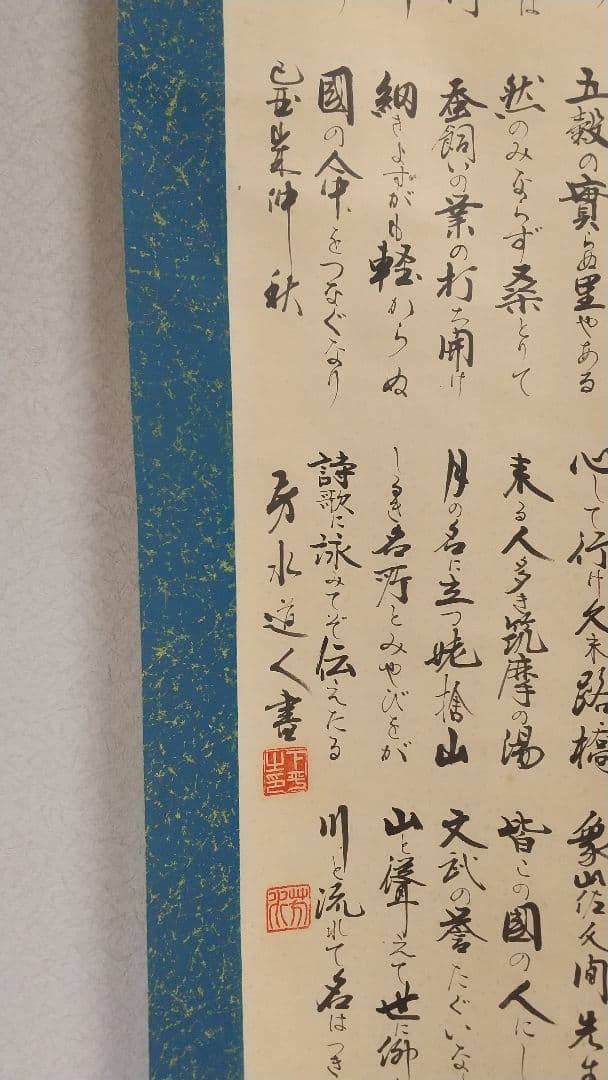 五穀の實らぬ里やある
然のみならず桑とりて
蚕飼いの業の打ち開け
細きよすがも軽からぬ
國の命をつなぐなり
仲秋
心して行け久米路橋
来る人多き筑摩の湯
月の名に立つ姥捨山
しるき名所とみやびをが
詩歌に詠みてぞ伝えたる
芳水道人書
象山佐久間先生
皆この國の人にし
文武の誉たぐいな
山と聳えて世に仰
川と流れて名はつき
芳水